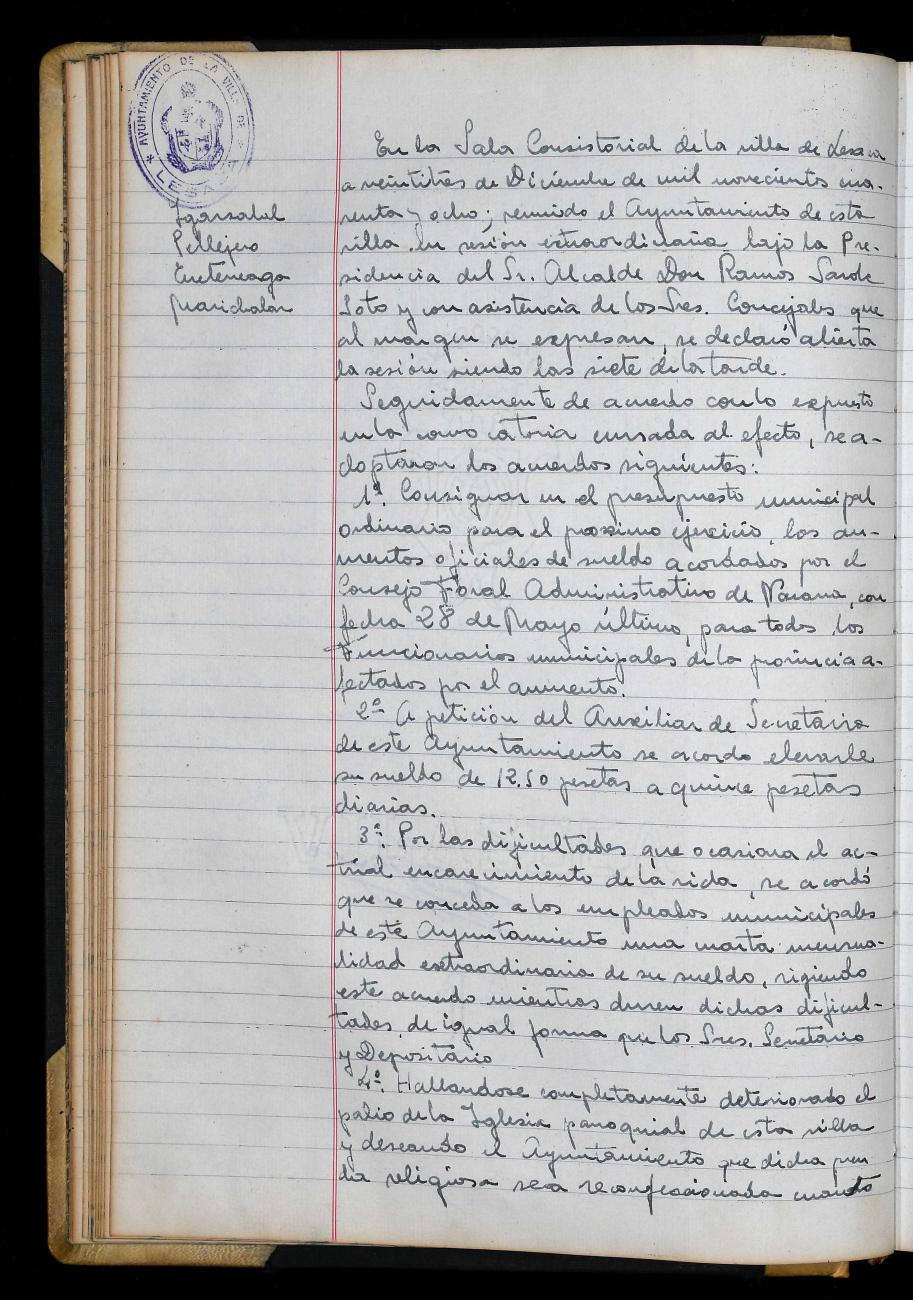 * AYUNTAMIENTO DE LA VILLA DE *
LESACA
Igarzabal
Pellejero
Eneteneaga
Marichalar
En la Sala Consistorial de la villa de Lesaca
a veintitres de Diciembre de mil novecientos cua-
renta y ocho; reunido el Ayuntamiento de esta
villa en sesión extraordinaria bajo la Pre-
sidencia del Sr. Alcalde Don Ramos
Soto y con asistencia de los Sres. Concejales que
al margen se expresan, se declaró abierta
la sesión siendo las siete de la tarde.
Seguidamente de acuerdo con lo expuesto
en la convocatoria cursada al efecto, se a-
doptaron los acuerdos siguientes:
1º. Consignar en el presupuesto municipal
ordinario para el proximo ejercicio, los au-
mentos oficiales de sueldo acordados por el
Consejo Foral Administrativo de Navarra, con
fecha 28 de Mayo último, para todos los
Funcionarios municipales de la provincia a-
fectados por el aumento.
2º A petición del Auxiliar de Secretario
de este Ayuntamiento se acordo elevarle
su sueldo de 12,50 pesetas a quince pesetas
diarias.
3º. Por las dificultades que ocasiona el ac-
tual encarecimiento de la vida, se acordó
que se conceda a los empleados municipales
de este Ayuntamiento una cuarta mensua-
lidad extraordinaria de su sueldo, rigiendo
este acuerdo mientras duren dichas dificul-
tades, de igual forma que los Sres. Secretario
y Depositario
4º. Hallandose completamente deteriorado el
palio de la Iglesia parroquial de esta villa
y deseando el Ayuntamiento que dicha pren
da religiosa sea reconfeccionada cuanto